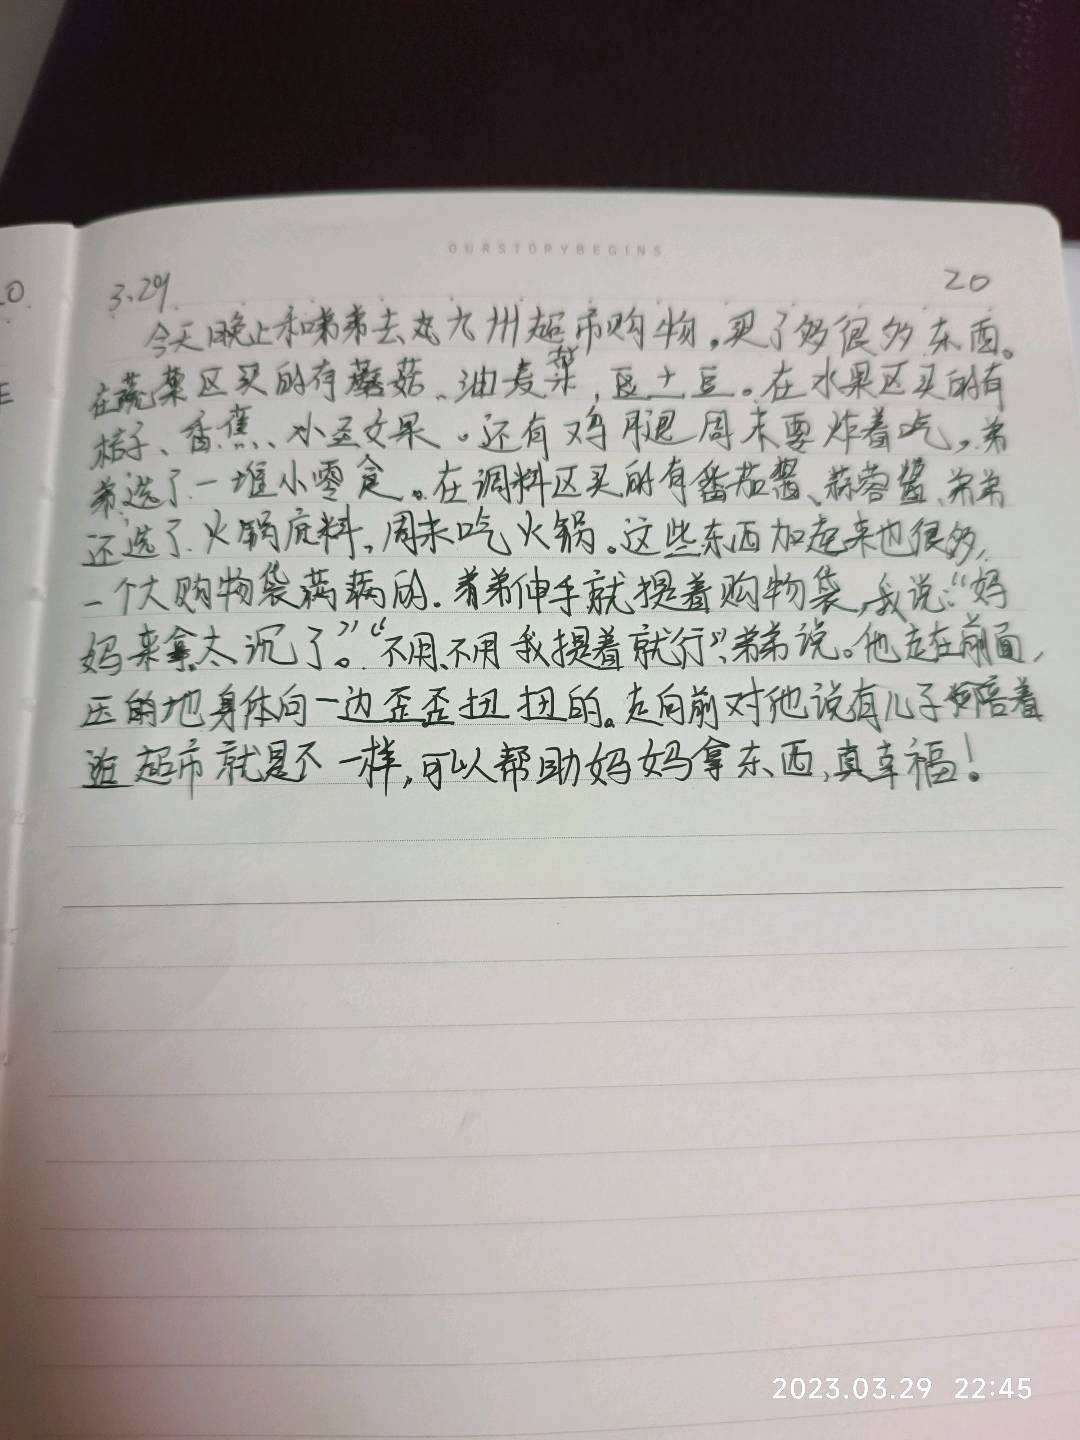 OURSTORYBEGINS
3.29
20
今天晚上和弟弟去九州超市购物。买了好很多东西。
在蔬菜区买的有蘑菇、油麦菜,土豆。在水果区买的有
桔子、香蕉、小圣女果。还有鸡腿周末要炸着吃,弟
弟选了一堆小零食。在调料区买的有番茄酱、蒜蓉酱、弟弟
还选了火锅底料,周末吃火锅。这些东西加起来也很多,
一个大购物袋满满的.弟弟伸手就提着购物袋,我说:“妈
妈来拿太沉了。”“不用、不用我提着就行”,弟弟说。他走在前面,
压的他身体向一边歪歪扭扭的。走向前对他说有儿子陪着
逛超市就是不一样,可以帮助妈妈拿东西,真幸福!
2023.03.29 22:45